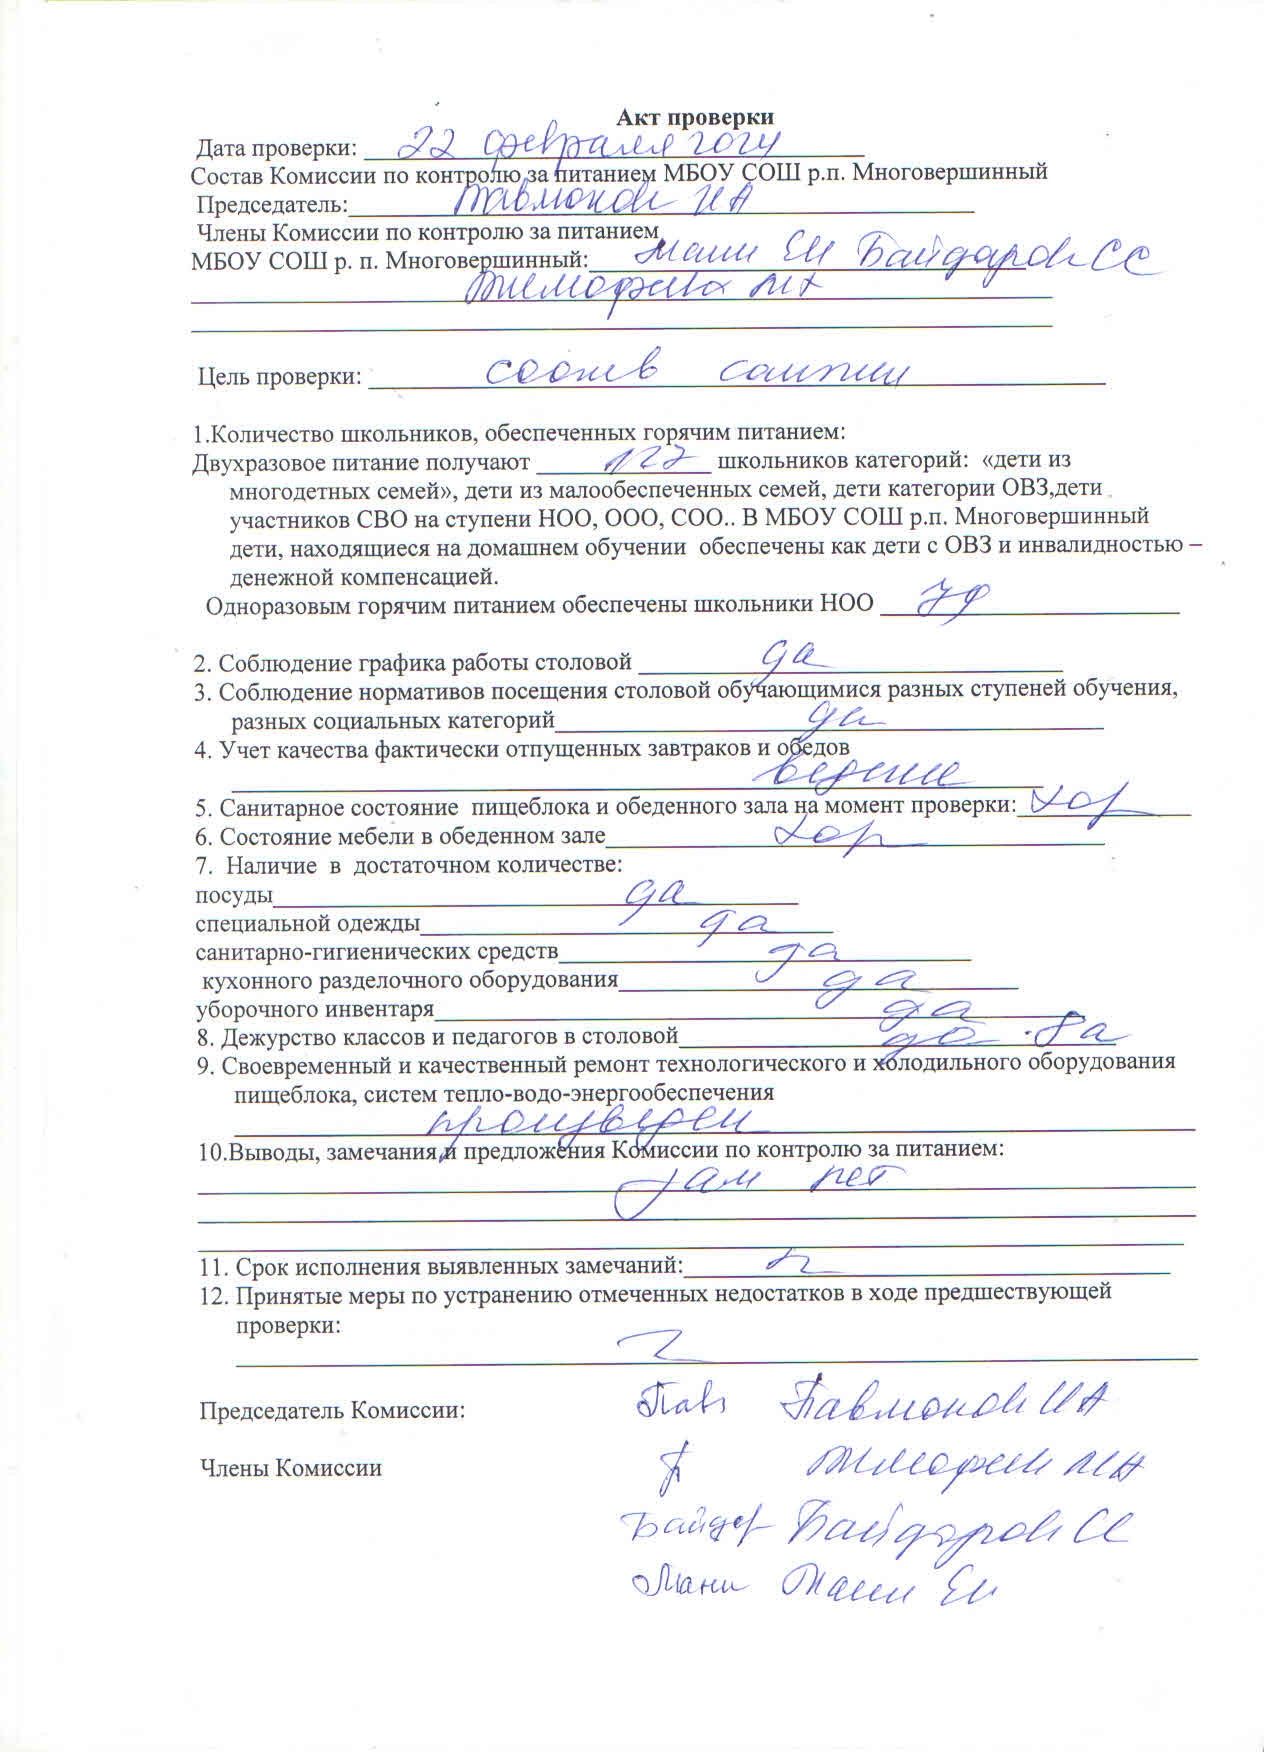 Акт проверки
Дата проверки: 22 февраля 2024
Состав Комиссии по контролю за питанием МБОУ СОШ р.п. Многовершинный
Председатель: ИА
Члены Комиссии по контролю за питанием
МБОУ СОШ р. п. Многовершинный: ЕИ Байдаров СС

Цель проверки:
1.Количество школьников, обеспеченных горячим питанием:
Двухразовое питание получают школьников категорий: «дети из
многодетных семей», дети из малообеспеченных семей, дети категории ОВЗ,дети
участников СВО на ступени НОО, ООО, СОО.. В МБОУ СОШ р.п. Многовершинный
дети, находящиеся на домашнем обучении обеспечены как дети с ОВЗ и инвалидностью –
денежной компенсацией.
Одноразовым горячим питанием обеспечены школьники НОО
2. Соблюдение графика работы столовой да
3. Соблюдение нормативов посещения столовой обучающимися разных ступеней обучения,
разных социальных категорий да
4. Учет качества фактически отпущенных завтраков и обедов
5. Санитарное состояние пищеблока и обеденного зала на момент проверки: хор
6. Состояние мебели в обеденном зале хор
7. Наличие в достаточном количестве:
посуды да
специальной одежды да
санитарно-гигиенических средств да
кухонного разделочного оборудования да
уборочного инвентаря да
8. Дежурство классов и педагогов в столовой да
9. Своевременный и качественный ремонт технологического и холодильного оборудования
пищеблока, систем тепло-водо-энергообеспечения
произведен
10.Выводы, замечания и предложения Комиссии по контролю за питанием:
зам нет
11. Срок исполнения выявленных замечаний:
12. Принятые меры по устранению отмеченных недостатков в ходе предшествующей
проверки:
Председатель Комиссии: ИА
Члены Комиссии
Байдаров СС
ЕИ